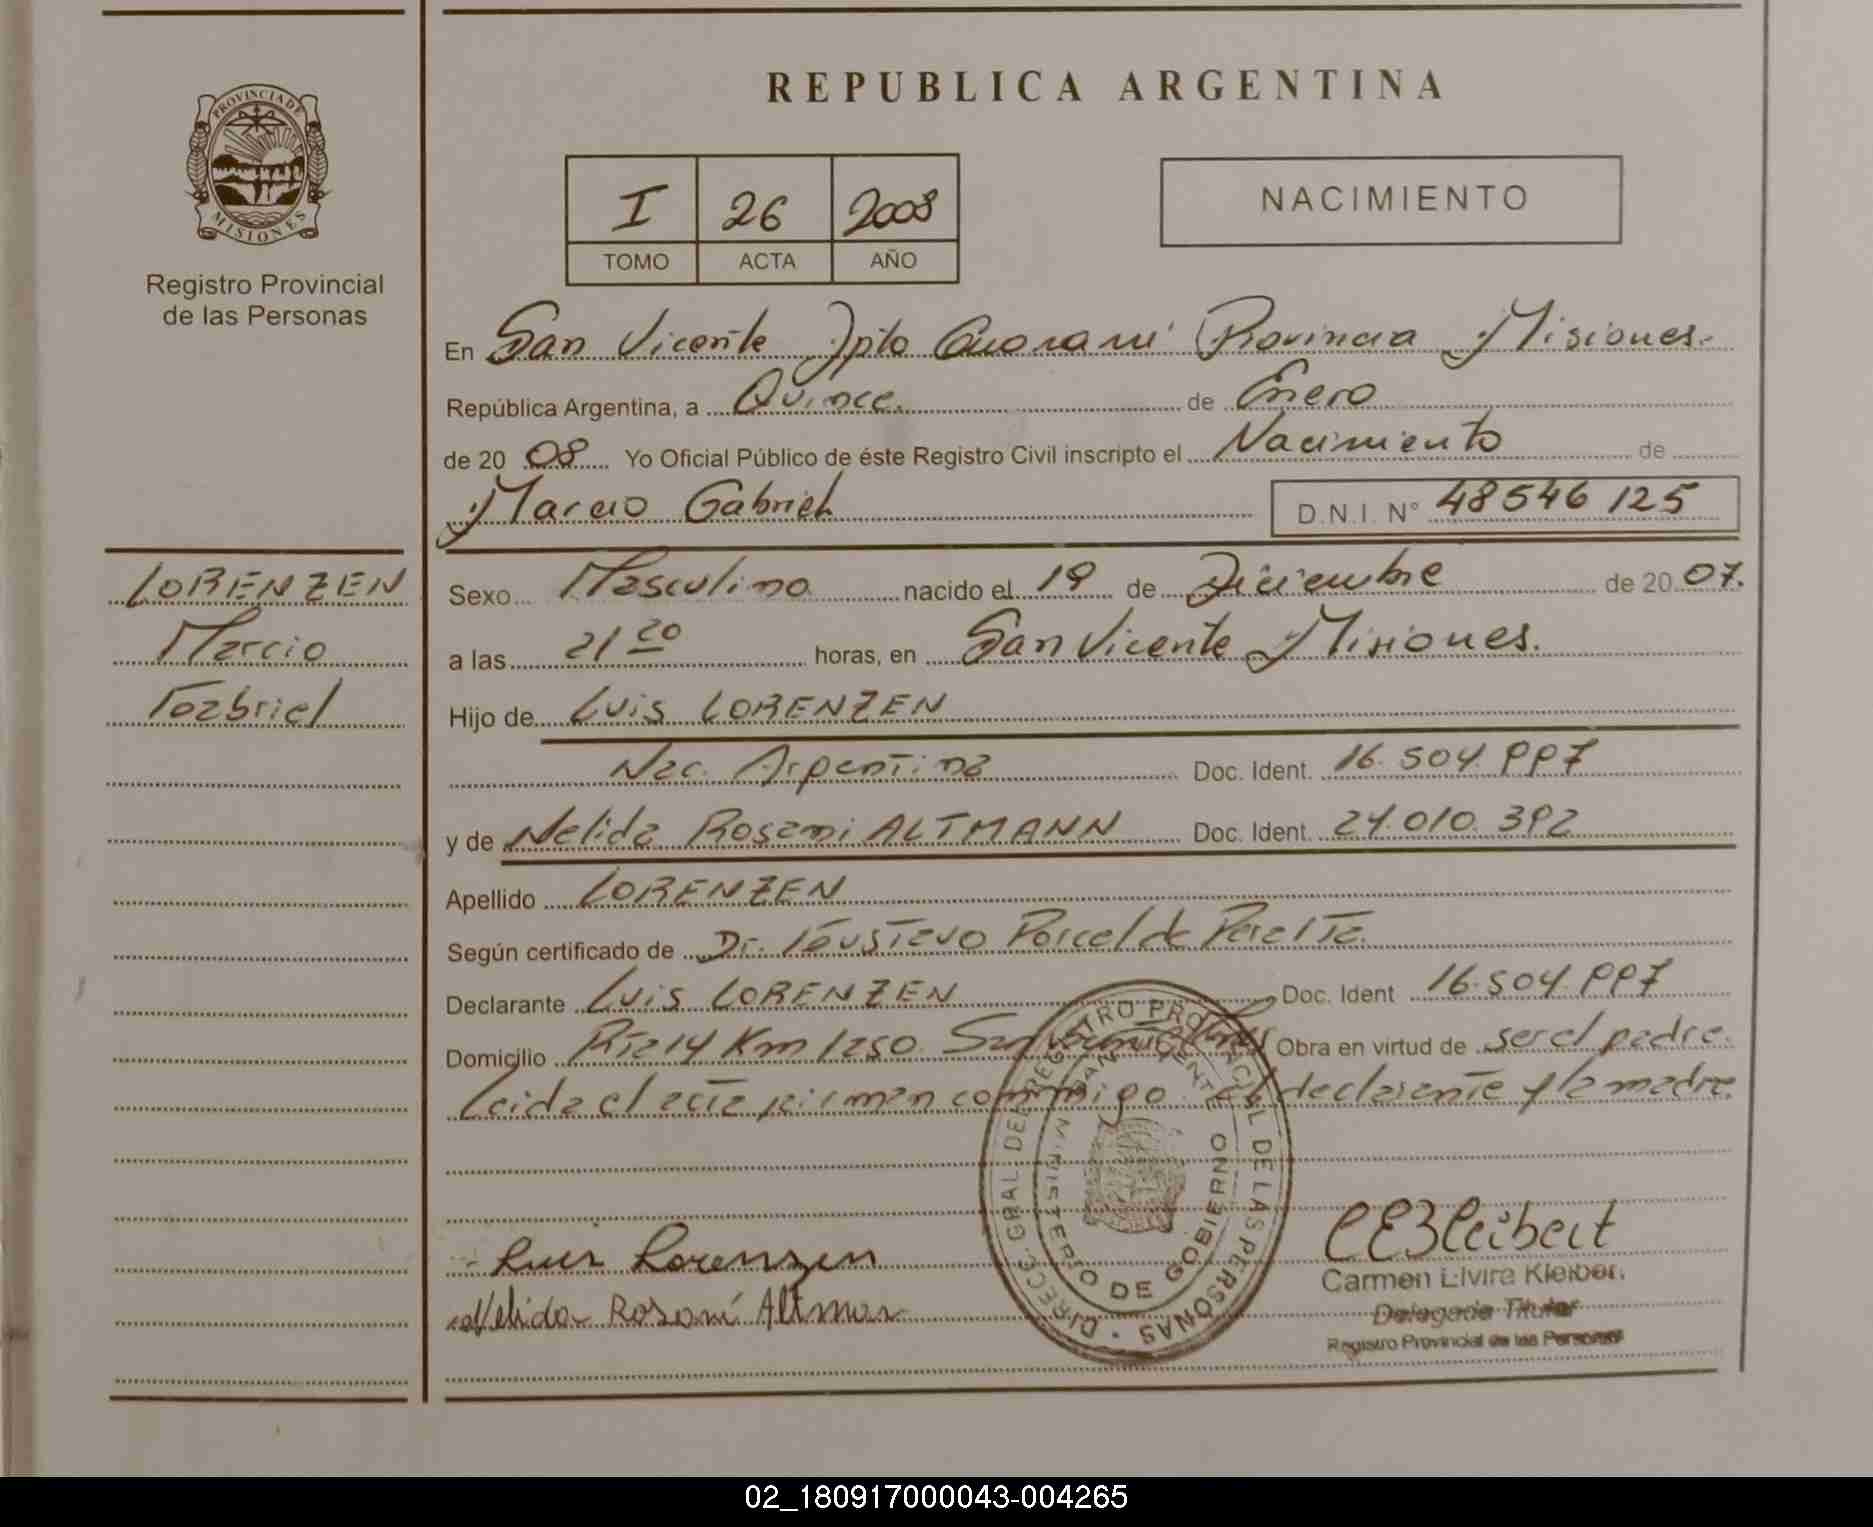 REPUBLICA ARGENTINA
PROVINCIA DE
MISIONES
Registro Provincial
de las Personas
I 26 2008
TOMO ACTA AÑO
NACIMIENTO
En San Vicente Dpto Guaraní Provincia Misiones.
República Argentina, a Quince. de Enero
de 20 08 Yo Oficial Público de éste Registro Civil inscripto el Nacimiento de
Marcio Gabriel D.N.I. N° 48546125
LORENZEN
Marcio
Gabriel
Sexo Masculino nacido el 19 de Diciembre de 20 07.
a las 21 20 horas, en San Vicente Misiones.
Hijo de Luis LORENZEN
Nac. Argentina Doc. Ident. 16.504.997
y de Nelida Rosani ALTMANN Doc. Ident. 24.010.392
Apellido LORENZEN
Según certificado de Dr. Gustavo Porcel de Peralta.
Declarante Luis LORENZEN Doc. Ident 16.504.997
Domicilio Rta 14 Km 1250 San Vicente Obra en virtud de ser el padre.
Leida el acta firman conmigo el declarante y la madre.
DIRECC. GRAL. DEL REGISTRO PROVINCIAL DE LAS PERSONAS
MINISTERIO DE GOBIERNO
Luis Lorenzen
Nelida Rosani Altman
Carmen Elvira Kleiber.
Delegada Titular
Registro Provincial de las Personas
02_180917000043-004265